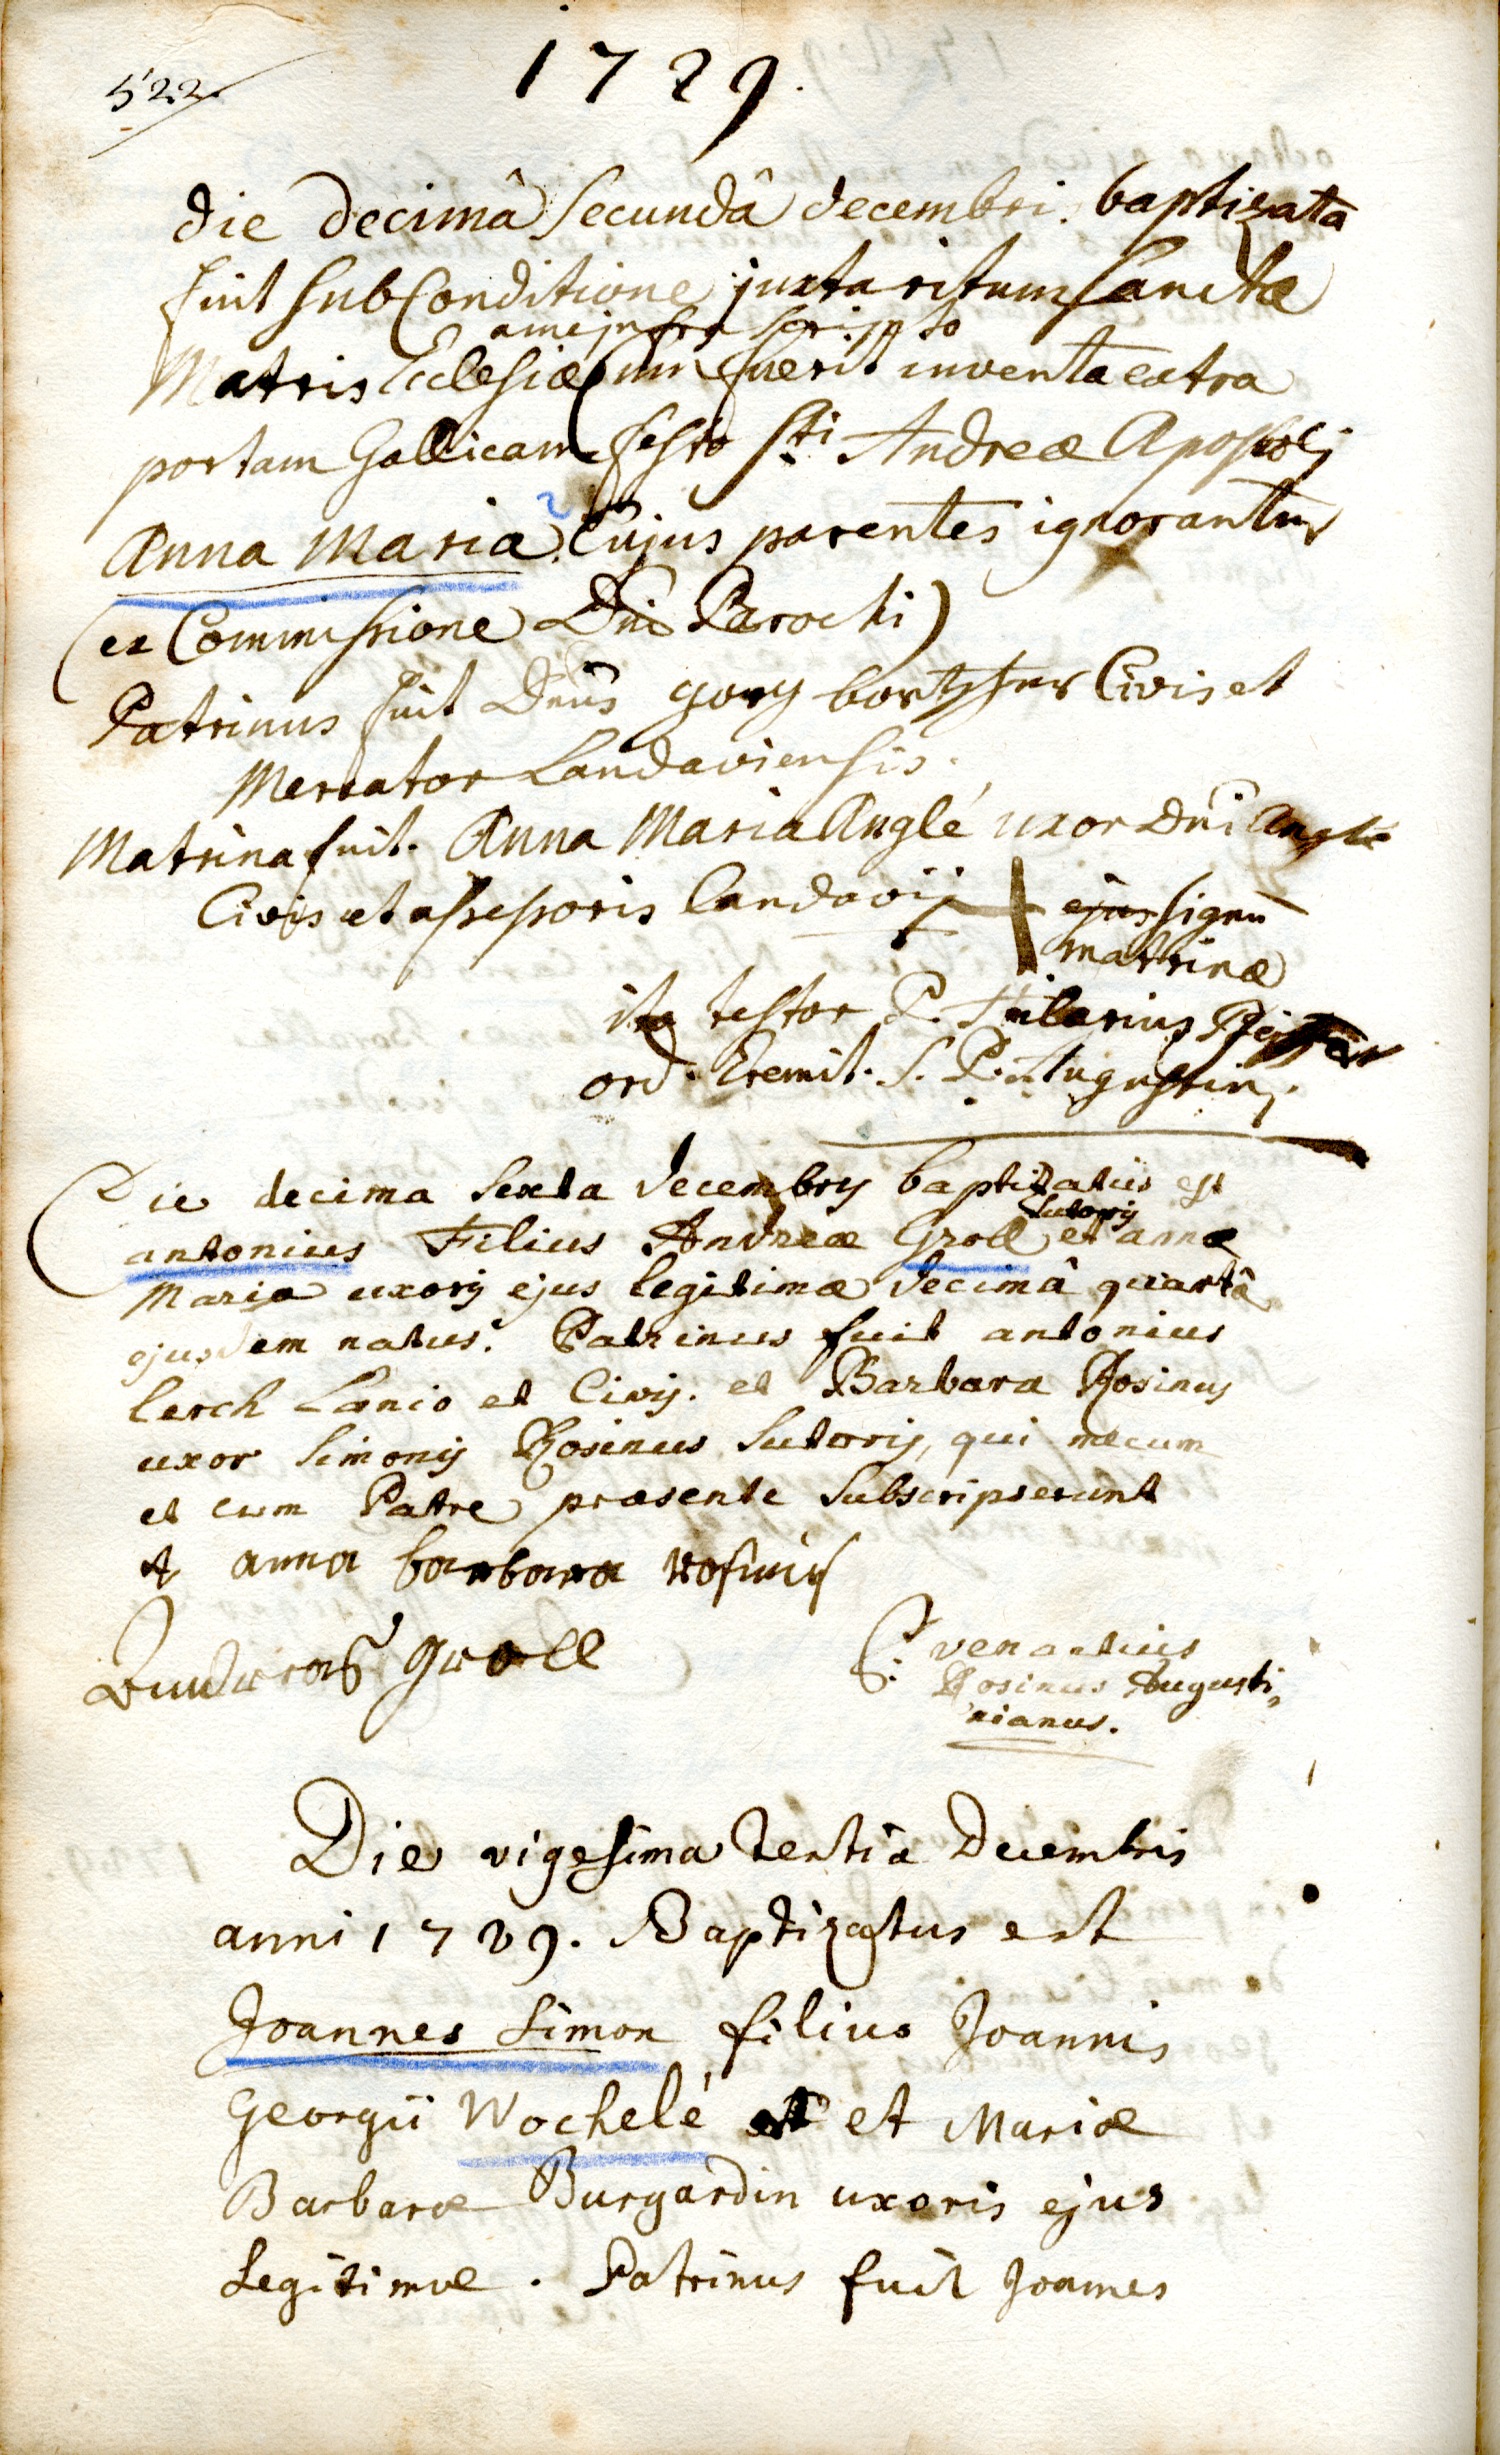 522
1729.
die decimâ secundâ decembri. baptizata
fuit sub Conditione juxta ritum sanctæ
a me infra scripto
Matris Ecclesiæ cum fuerit inventa extra
portam Gallicam festo sti Andreæ Apostoli
Anna Maria. Cujus parentes ignorantur
(ex Commissione Dni Parochi)
Patrinus fuit Dnus Civis et
Mercator Landaviensis.
Matrina fuit. Anna Maria Anglé uxor Dni Anglé
Civis et assessoris Landavij + ejus signu
matrinæ
ita testor P. Hilarius
ord. Eremit. S. P. Augustini.
Die decima sexta decembris baptizatus est
sutoris
antonius Filius Andreæ Groll et annæ
Maria uxoris ejus legitimæ decimâ quartâ
ejusdem natus. Patrinus fuit antonius
lerch Lanio et Civis. et Barbara Rosinus
uxor Simonis Rosinus Sutoris, qui mecum
et cum Patre præsente subscripserunt
anna barbara rosinus
Andreas groll
P. venantius
Rosinus Augusti,
nianus.
Die vigesima tertia Decembris
anni 1729. Baptizatus est
Joannes Simon filius Joannis
Georgii Wochelé et Mariæ
Barbaræ Burgardin uxoris ejus
Legitimæ. Patrinus fuit Joannes